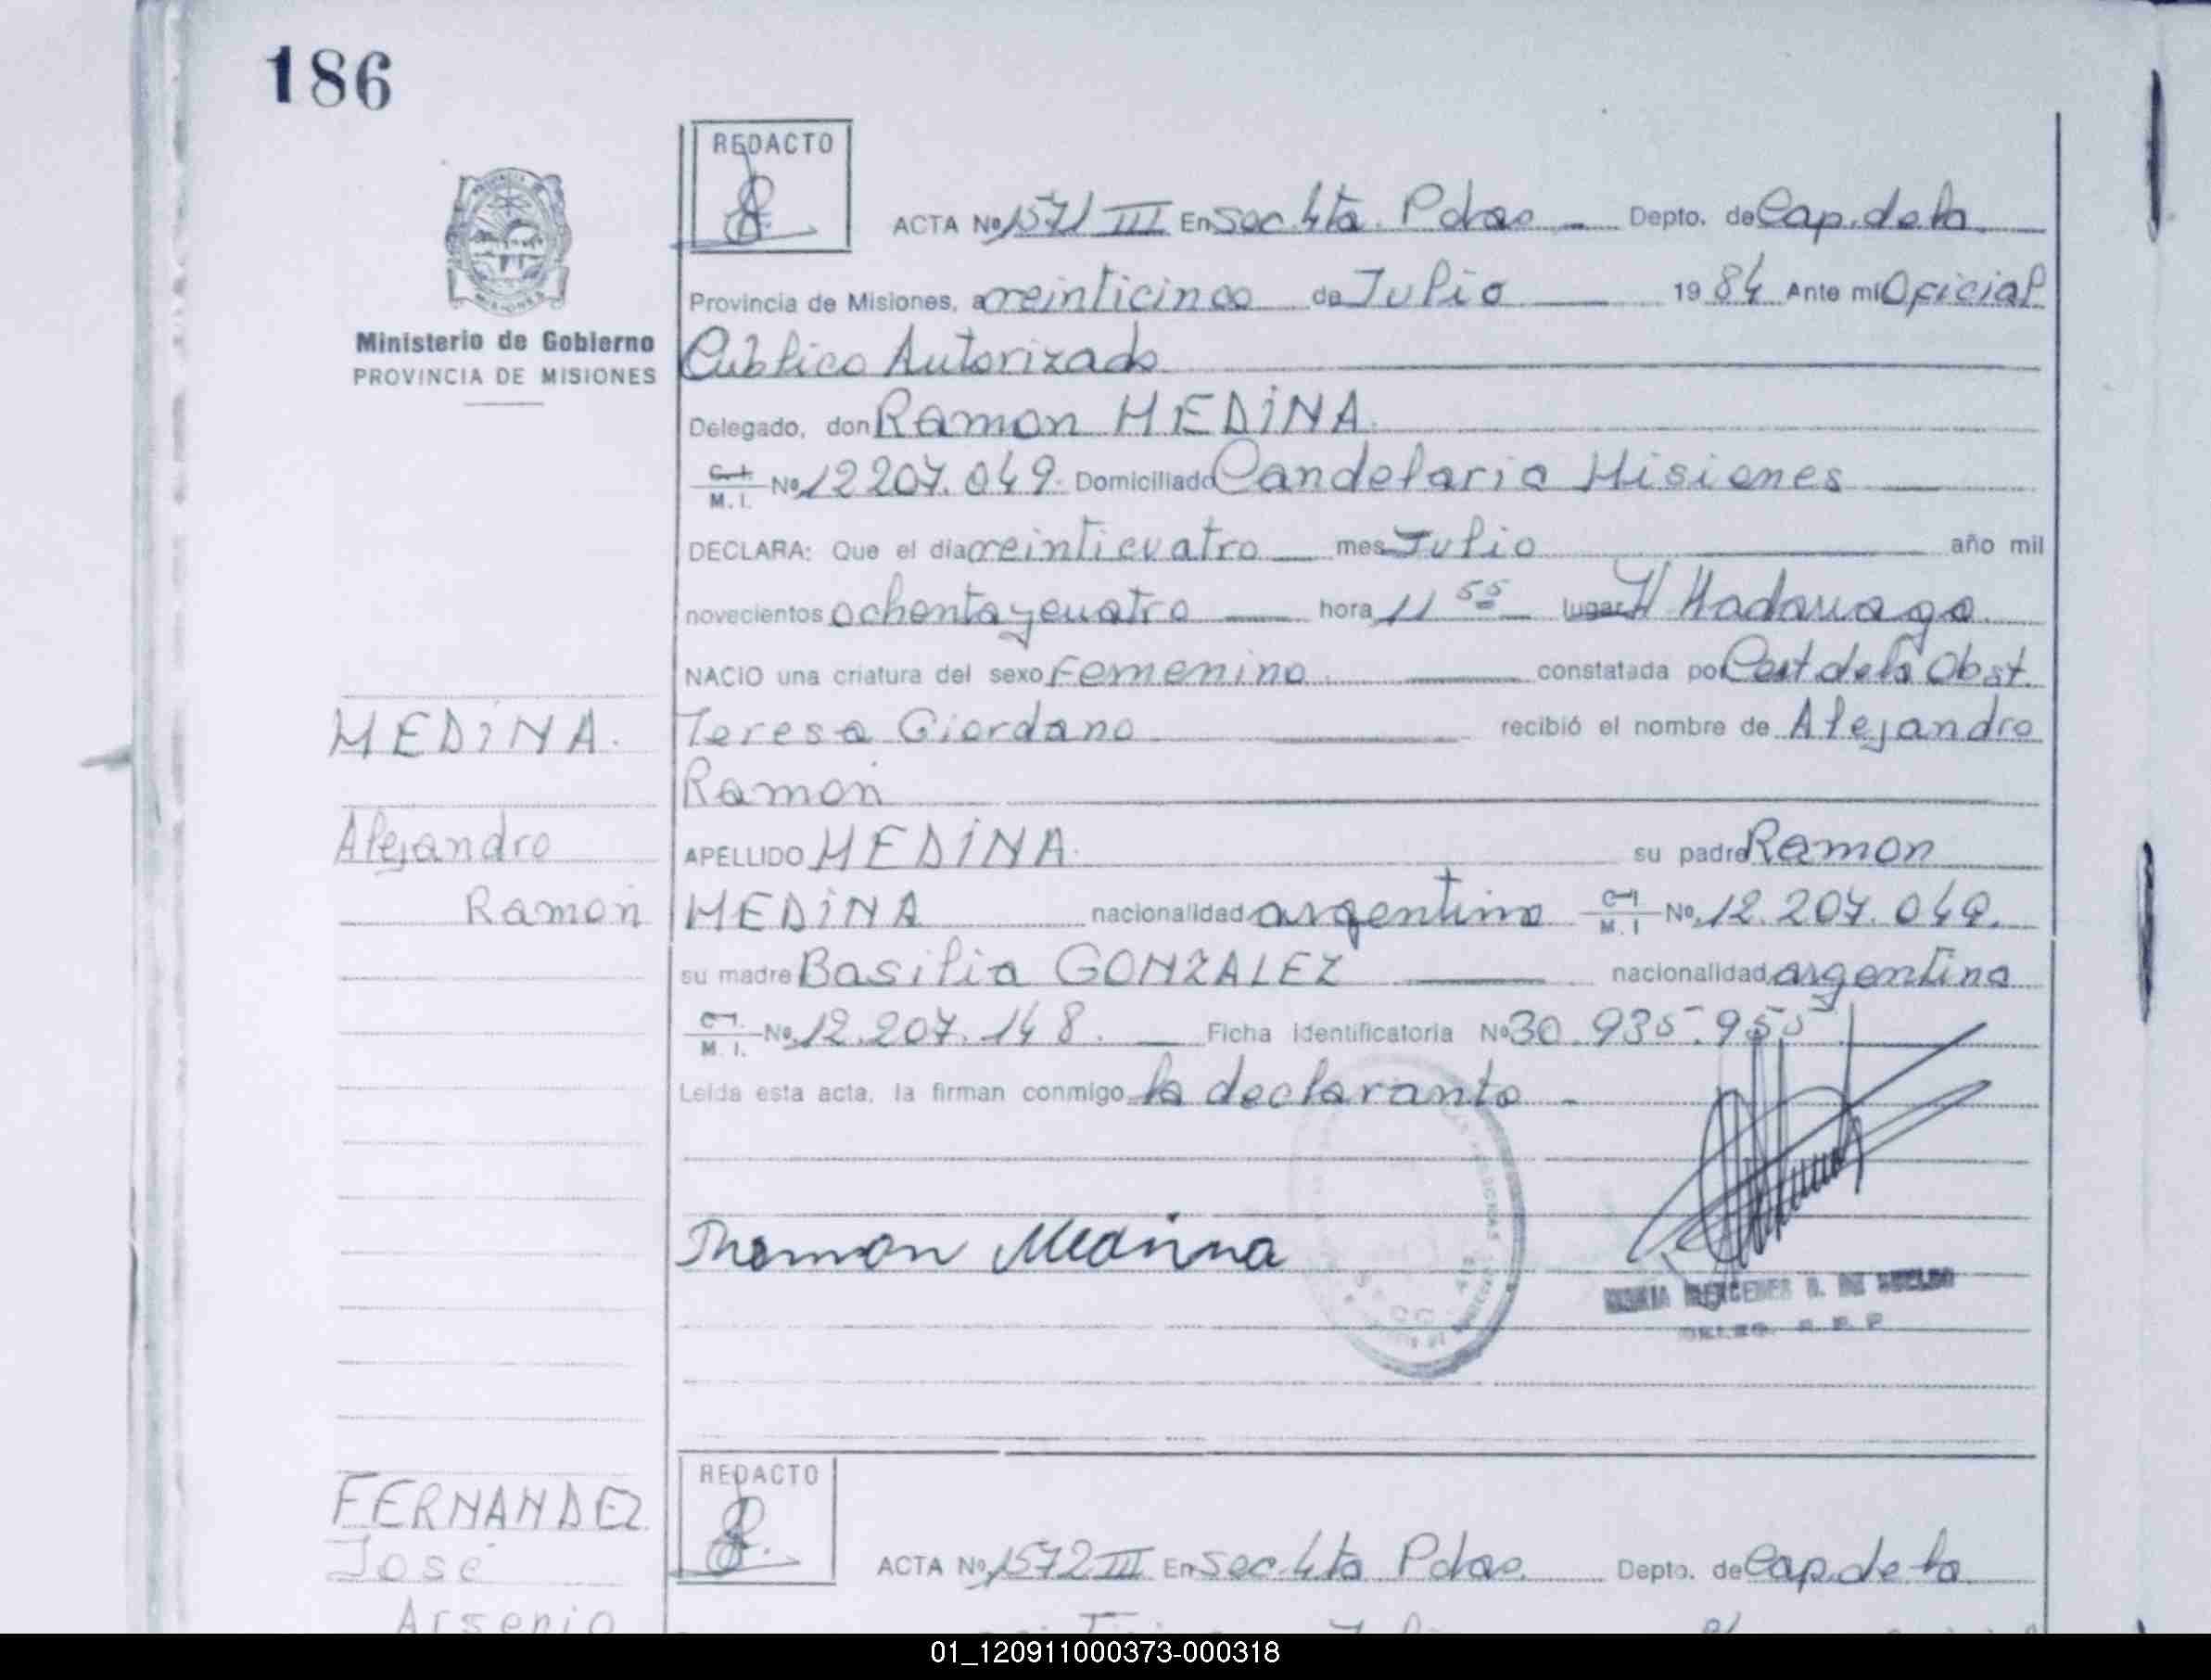 186
REDACTO
ACTA Nº 1571 III En Sec. 4ta. Pdas. Depto. de Cap. de la
Provincia de Misiones, a veinticinco de Julio 19 84 Ante mí Oficial
Ministerio de Gobierno
PROVINCIA DE MISIONES
Público Autorizado
Delegado, don Ramon MEDINA
C.I. M.I. Nº 12 207.049. Domiciliado Candelaria Misiones
DECLARA: Que el día veinticuatro mes Julio año mil
novecientos ochenta y cuatro hora 11 55 lugar H Madariaga
NACIO una criatura del sexo Femenino constatada por Cert de la Obst.
MEDINA.
Teresa Giordano recibió el nombre de Alejandro
Ramon
Alejandro
Ramon
APELLIDO MEDINA su padre Ramon
MEDINA nacionalidad argentino C.I. M.I Nº 12.207.049.
su madre Basilia GONZALEZ nacionalidad argentina
C.I. M.I. Nº 12.207.148. Ficha identificatoria Nº 30.935.955
Leída esta acta, la firman conmigo la declarante
Ramon Medina
MARIA MERCEDES
DELEG. R. P.
FERNANDEZ
José
Arsenio
REDACTO
ACTA Nº 1572 III En Sec. 4ta Pdas. Depto. de Cap. de la
01_120911000373-000318